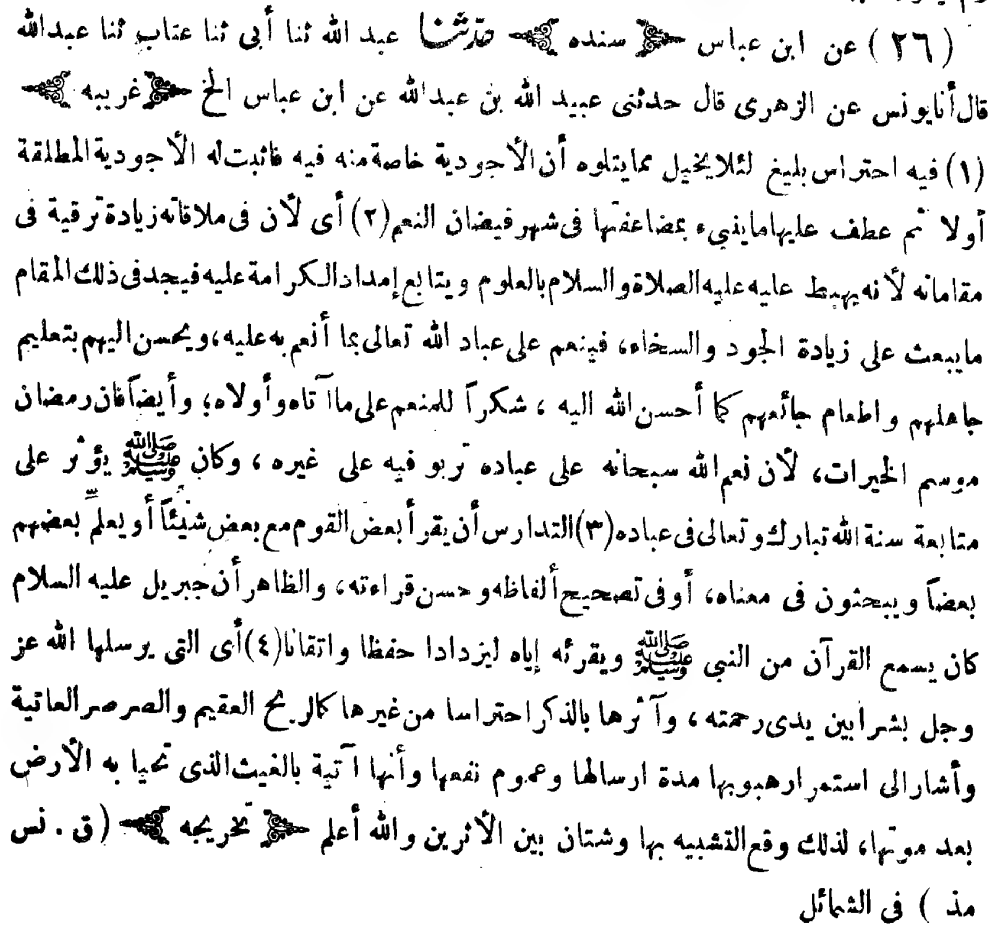 (٢٦) عن ابن عباس ﴿سنده﴾ حدثنا عبد الله ثنا أبى ثنا عتاب ثنا عبدالله
قال أنا يونس عن الزهرى قال حدثنى عبيد الله بن عبدالله عن ابن عباس الخ ﴿غريبه﴾
(١) فيه احتراس بليغ لئلا يخيل مما يتلوه أن الأجودية خاصة منه فيه فاثبت له الأجودية المطلقة
أولا ثم عطف عليها ما ينبىء بمضاعفتها فى شهر فيضان النعم (٢) أى لأن فى ملاقاته زيادة ترقية فى
مقاماته لأنه يهبط عليه عليه الصلاة والسلام بالعلوم ويتابع إمداد الكرامة عليه فيجد فى ذلك المقام
ما يبعث على زيادة الجود والسخاء، فينعم على عباد الله تعالى بما أنعم به عليه، ويحسن اليهم بتعليم
جاهلهم واطعام جائعهم كما أحسن الله اليه ، شكراً للمنعم على ما آتاه وأولاه؛ وأيضاً فان رمضان
موسم الخيرات، لأن نعم الله سبحانه على عباده تربو فيه على غيره ، وكان ﷺ يؤثر على
متابعة سنة الله تبارك وتعالى فى عباده (٣) التدارس أن يقرأ بعض القوم مع بعض شيئاً أو يعلِّم بعضهم
بعضاً ويبحثون فى معناه، أو فى تصحيح ألفاظه وحسن قراءته، والظاهر أن جبريل عليه السلام
كان يسمع القرآن من النبى ﷺ ويقرئه إياه ليزدادا حفظا واتقانا (٤) أى التى يرسلها الله عز
وجل بشرا بين يدى رحمته ، وآثرها بالذكر احتراسا من غيرها كالريح العقيم والصرصر العاتية
وأشار الى استمرار هبوبها مدة ارسالها وعموم نفعها وأنها آتية بالغيث الذى تحيا به الأرض
بعد موتها، لذلك وقع التشبيه بها وشتان بين الأثرين والله أعلم ﴿تخريجه﴾ (ق . نس
مذ ) فى الشمائل